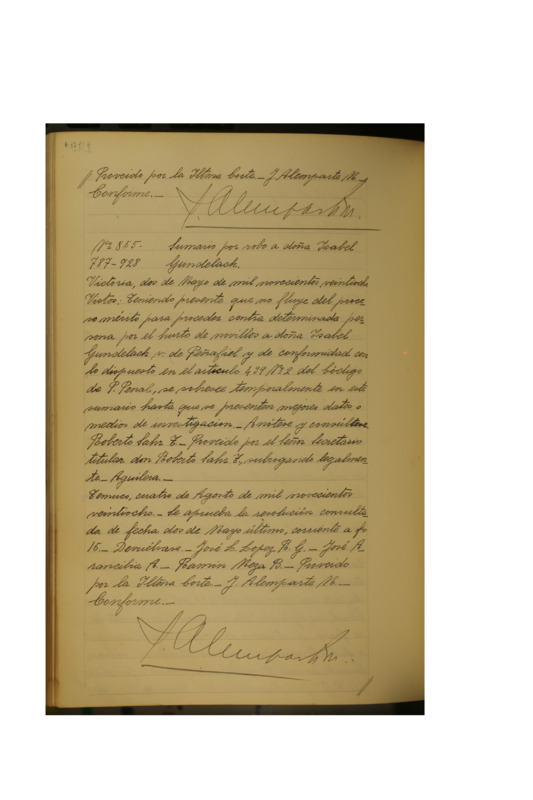 Proveido por la Iltma Corte._ J. Alemparte M._
Conforme._
J. Alemparte M.
Nº 855. Sumario por robo a doña Isabel
787-928 Gundelach.
Victoria, dos de Mayo de mil novecientos veintiocho
Vistos: Teniendo presente que no fluye del proce
so mérito para proceder contra determinada per
sona por el hurto de novillos a doña Isabel
Gundelach v. de Peñafiel y de conformidad con
lo dispuesto en el artículo 439 Nº 2 del Código
de P. Penal, se sobresee temporalmente en este
sumario hasta que se presenten mejores datos o
medios de investigación._ Anótese y consúltese
Roberto Sahr T._ Proveido por el señor secretario
titular don Roberto Sahr T., subrogando legalmen
te._ Aguilera._
Temuco, cuatro de Agosto de mil novecientos
veintiocho._ Se aprueba la resolución consulta
da de fecha dos de Mayo último, corriente a fs
16._ Devuélvase._ José L. Lopez R. G._ José A
rancibia A._ Ramón Meza B._ Proveido
por la Iltma Corte._ J. Alemparte M._
Conforme._
J. Alemparte M.